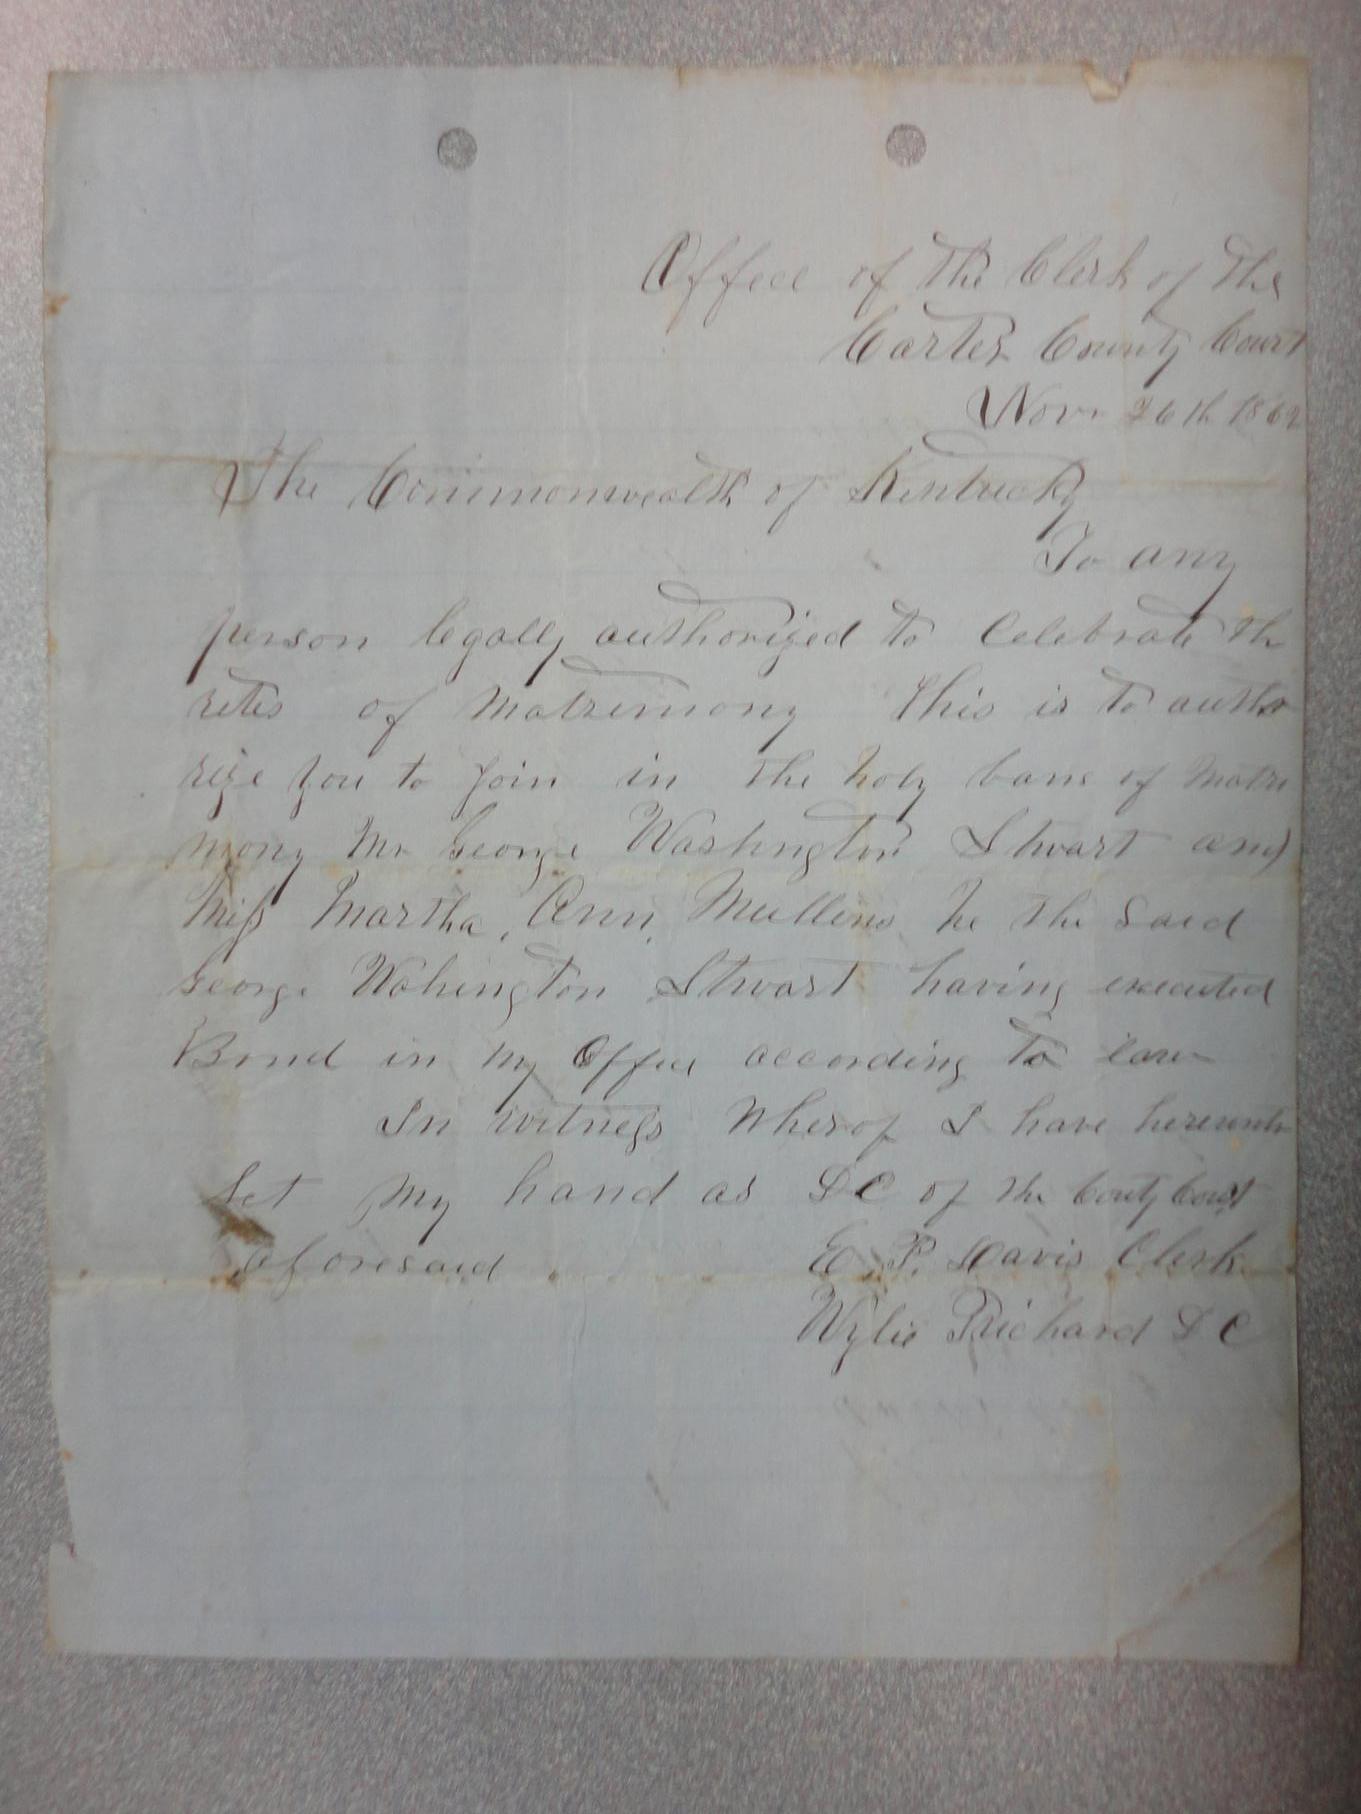 Office of the Clerk of the
Carter County Court
Nov. 26th 1862
The Commonwealth of Kentucky
To any
person legally authorized to Celebrate the
rites of Matrimony This is to autho
rize you to join in the holy bans of Matri
mony Mr George Washington Stwart and
Miss Martha, Ann, Mullins he the said
George Wahington Stwart having executed
Bond in my Office according to law
In witness Wherof I have hereunto
Set my hand as DC of the Couty Court
aforesaid. E. P. Davis Clerk
Wylie Prichard DC